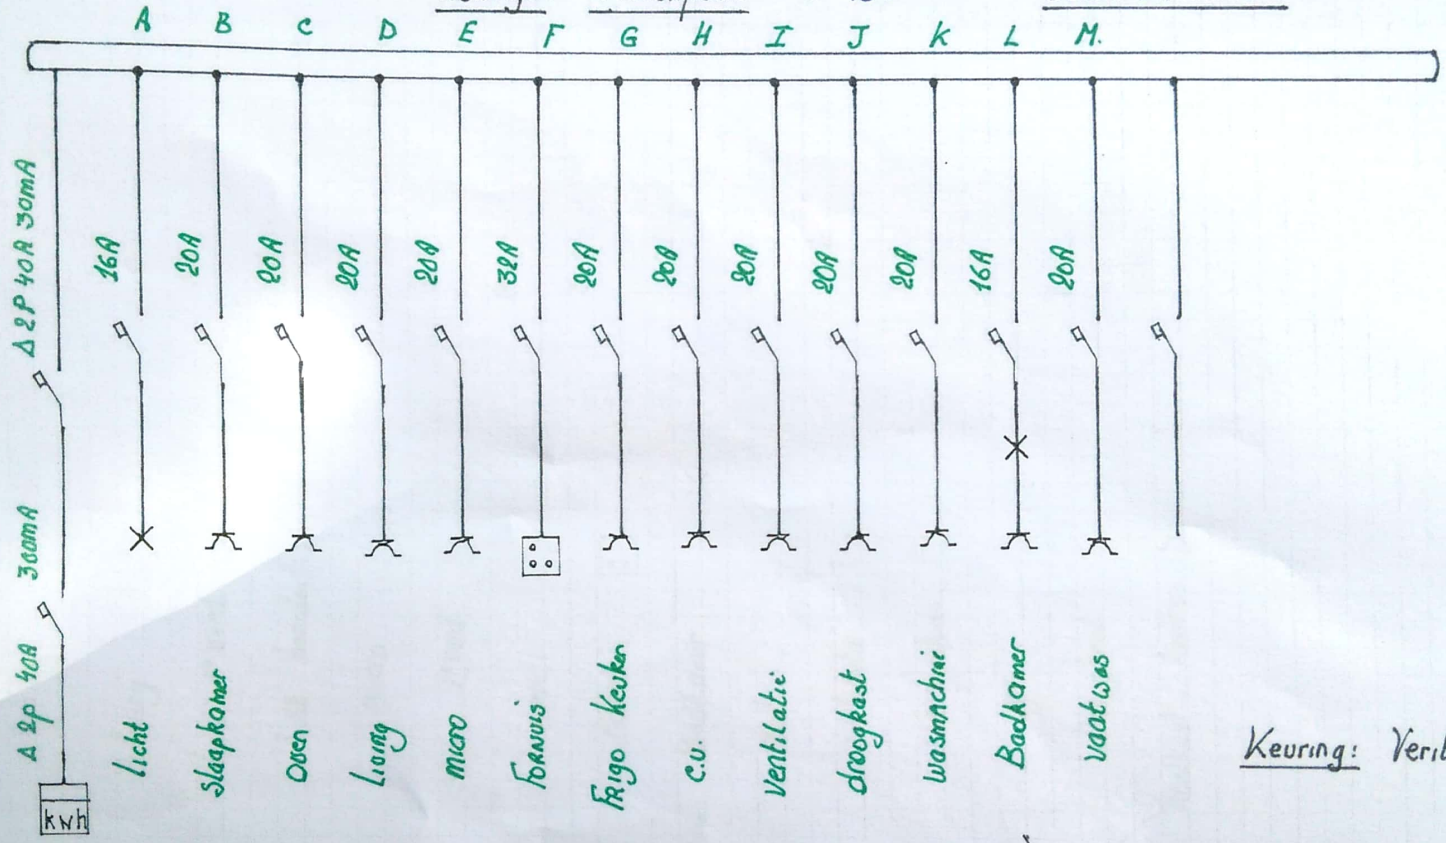 A B C D E F G H I J K L M.
Δ 2P 40A 30mA
16A
20A
20A
20A
20A
32A
20A
20A
20A
20A
20A
16A
20A
Δ 2p 40A 300mA
kwh
Licht
Slaapkamer
Oven
Living
micro
Fornuis
Frigo keuken
C.V.
Ventilatie
droogkast
Wasmachine
Badkamer
Vaatwas
Keuring: